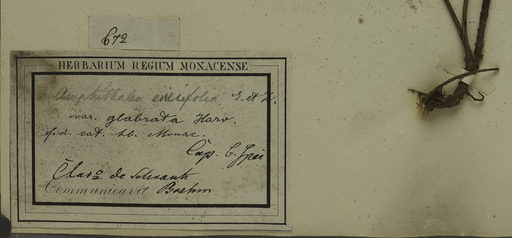 672
HERBARIUM REGIUM MONACENSE
Amphithalea ericifolia E. et Z.
var. glabrata Harv.
fid. cat. hb. Monac.
Cap. b. Spei
de Schrank
Communicavit Boehm